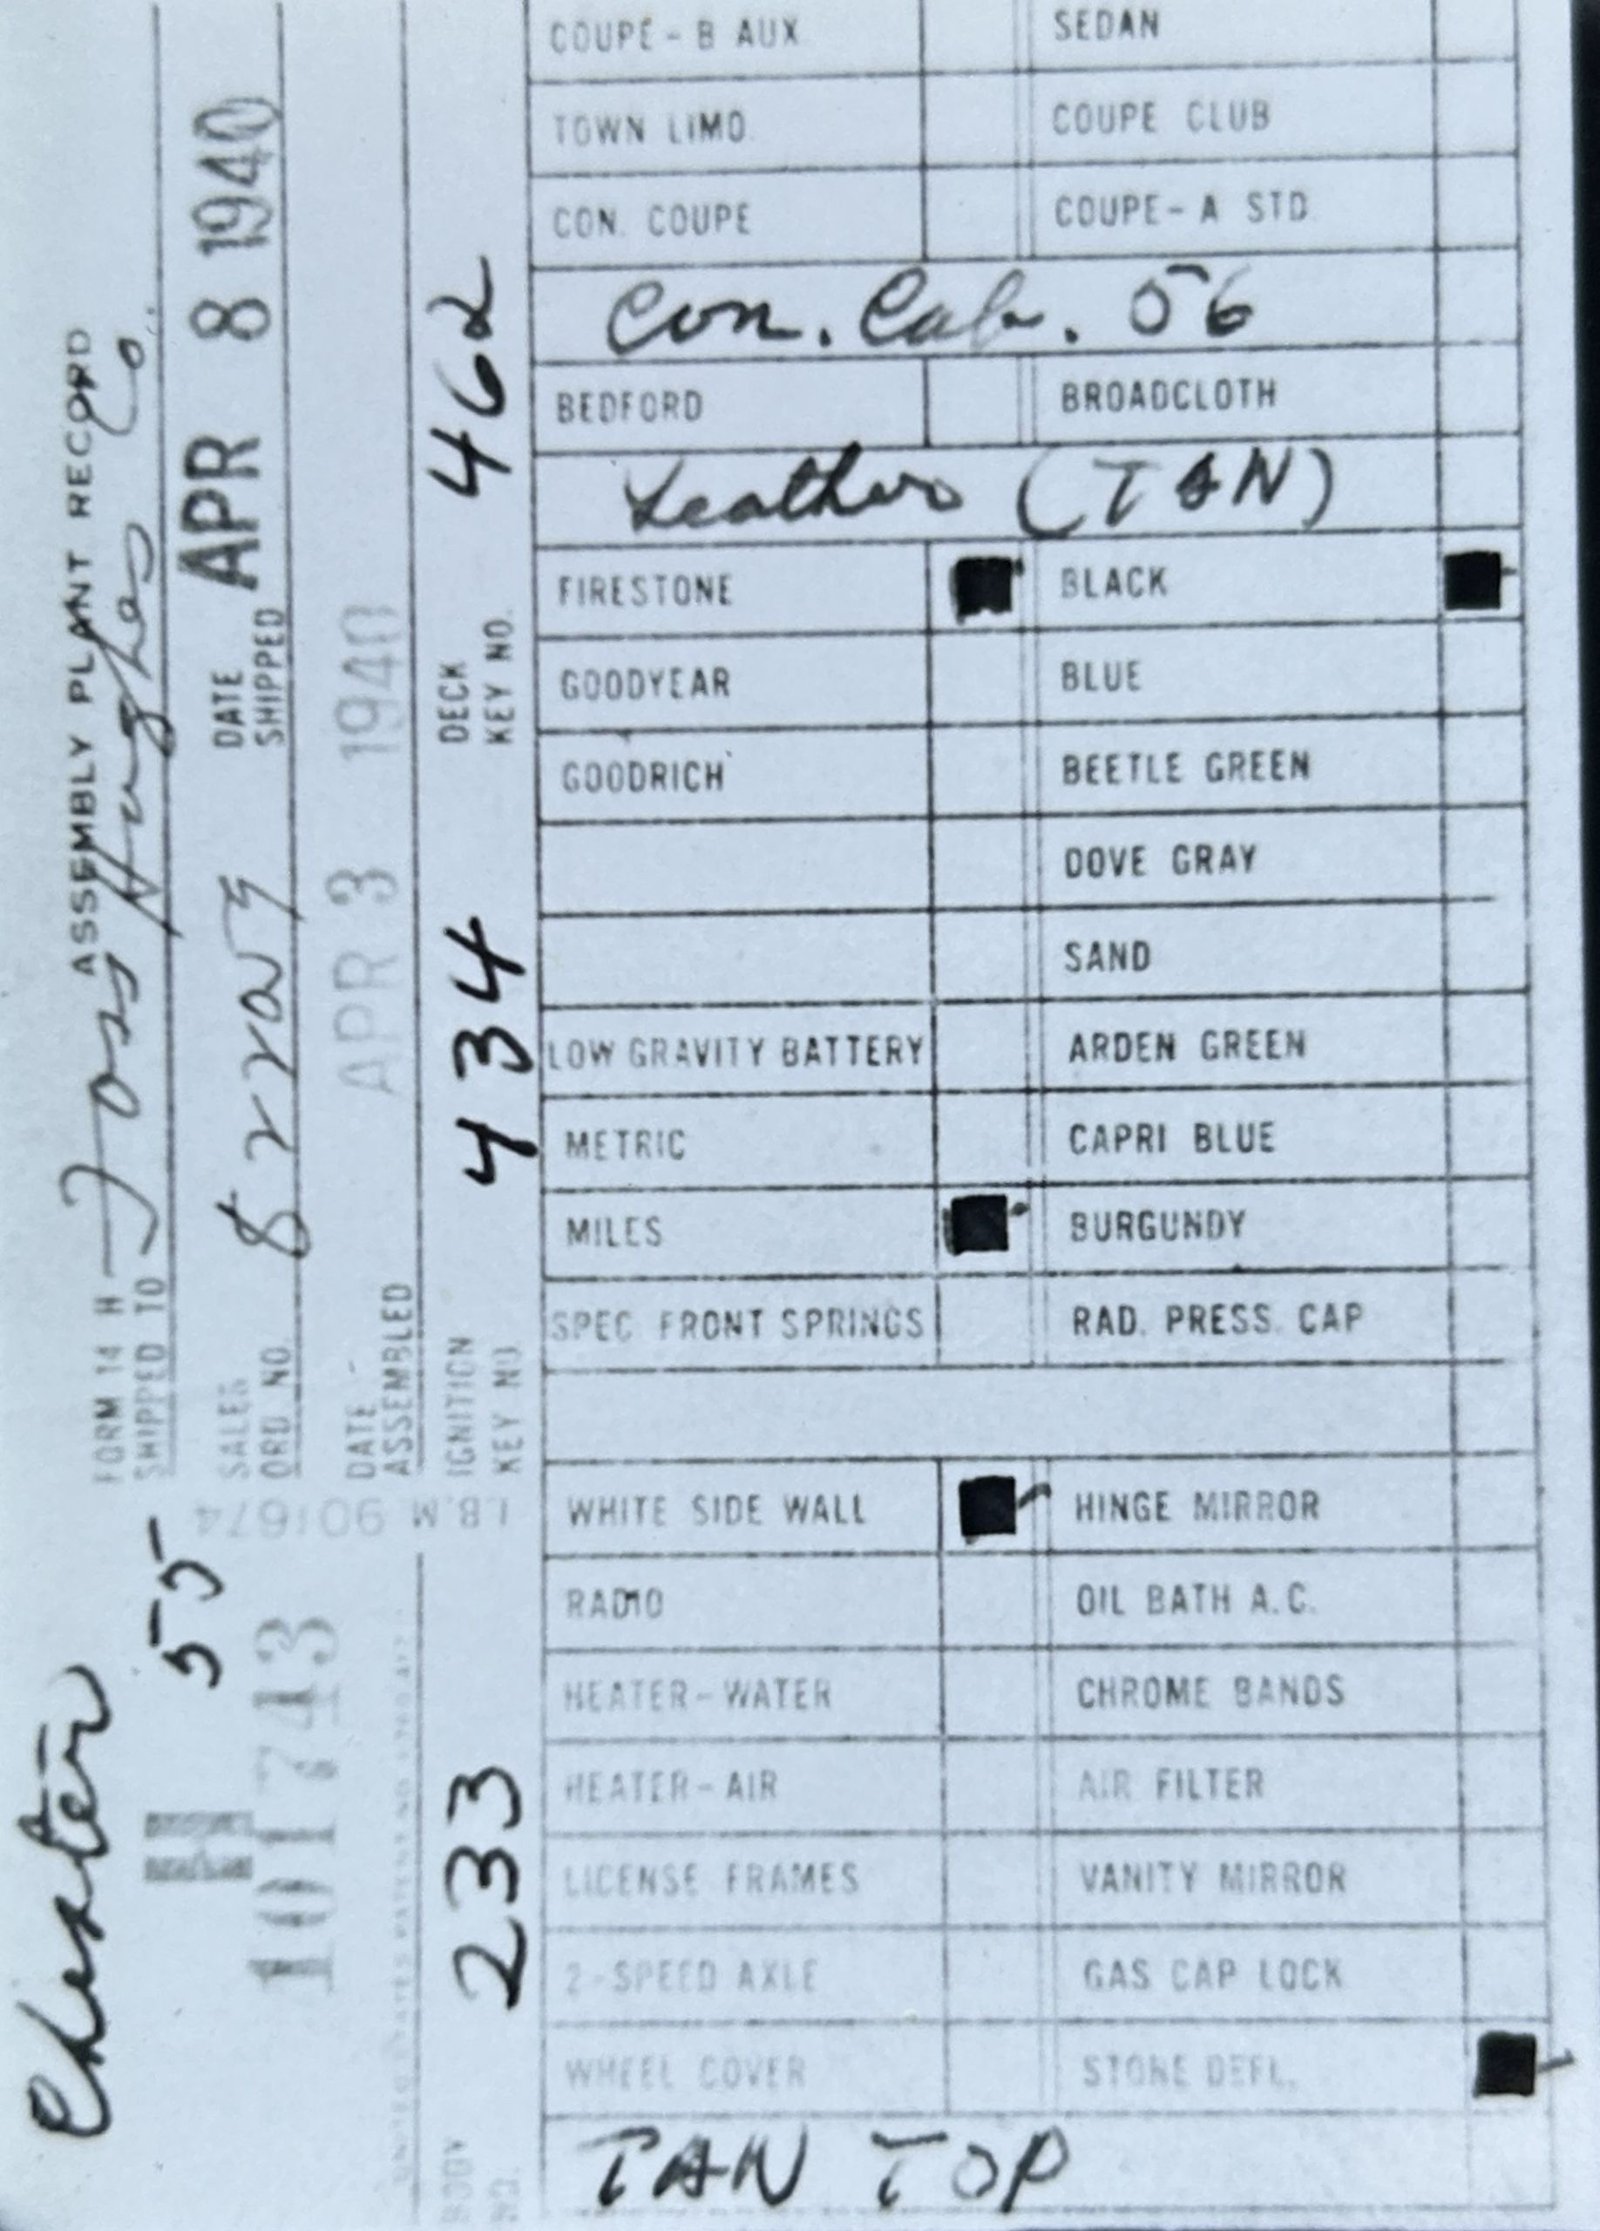 Chester
55
H
101743
ASSEMBLY PLANT RECORD
FORM 14 H
SHIPPED TO Foss Hughes Co.
SALES ORD. NO.
DATE SHIPPED APR 8 1940
DATE - ASSEMBLED APR 3 1940
I.B.M 901674
BODY NO. 233
IGNITION KEY NO. 434
DECK KEY NO. 462
COUPE - B AUX SEDAN
TOWN LIMO. COUPE CLUB
CON. COUPE COUPE - A STD
Con. Cab. 56
BEDFORD BROADCLOTH
Leather (TAN)
FIRESTONE BLACK
GOODYEAR BLUE
GOODRICH BEETLE GREEN
DOVE GRAY
SAND
LOW GRAVITY BATTERY ARDEN GREEN
METRIC CAPRI BLUE
MILES BURGUNDY
SPEC FRONT SPRINGS RAD. PRESS. CAP
WHITE SIDE WALL HINGE MIRROR
RADIO OIL BATH A.C.
HEATER - WATER CHROME BANDS
HEATER - AIR AIR FILTER
LICENSE FRAMES VANITY MIRROR
2-SPEED AXLE GAS CAP LOCK
WHEEL COVER STONE DEFL.
TAN TOP